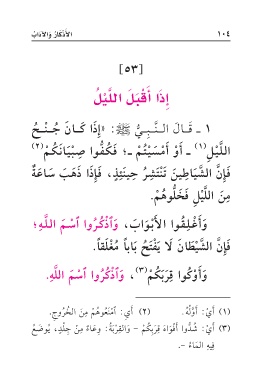 ١٠٤ الأَذْكَارُ وَالآدَابُ
[٥٣]
إِذَا أَقْبَلَ اللَّيْلُ
١ ـ قَالَ النَّبِيُّ ﷺ: «إِذَا كَانَ جُنْحُ
اللَّيْلِ(١) ـ أَوْ أَمْسَيْتُمْ ـ؛ فَكُفُّوا صِبْيَانَكُمْ(٢)
فَإِنَّ الشَّيَاطِينَ تَنْتَشِرُ حِينَئِذٍ، فَإِذَا ذَهَبَ سَاعَةٌ
مِنَ اللَّيْلِ فَخَلُّوهُمْ.
وَأَغْلِقُوا الأَبْوَابَ، وَٱذْكُرُوا ٱسْمَ اللَّهِ؛
فَإِنَّ الشَّيْطَانَ لَا يَفْتَحُ بَاباً مُغْلَقاً.
وَأَوْكُوا قِرَبَكُمْ(٣)، وَٱذْكُرُوا ٱسْمَ اللَّهِ.
(١) أَيْ: أَوَّلُهُ. (٢) أَيْ: ٱمْنَعُوهُمْ مِنَ الخُرُوجِ.
(٣) أَيْ: شُدُّوا أَفْوَاهَ قِرَبِكُمْ - وَالقِرْبَةُ: وِعَاءٌ مِنْ جِلْدٍ، يُوضَعُ
فِيهِ المَاءُ -.